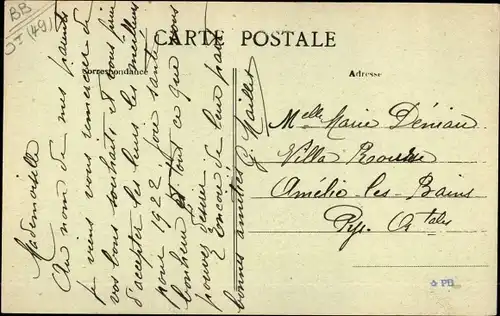 BB
(49)
CARTE POSTALE
Correspondance
Adresse
Mademoiselle
Au nom de mes parents
je viens vous remercier de
vos bons souhaits et vous prie
d'accepter les leurs les meilleurs
pour 1922 joie santé
bonheur et tout ce que vous
pouvez désirer
Encore de leur part
bonnes amitiés G. Maillet
Melle Marie Déniau
Villa
Amélie-les-Bains
Pyr. Otales
PB